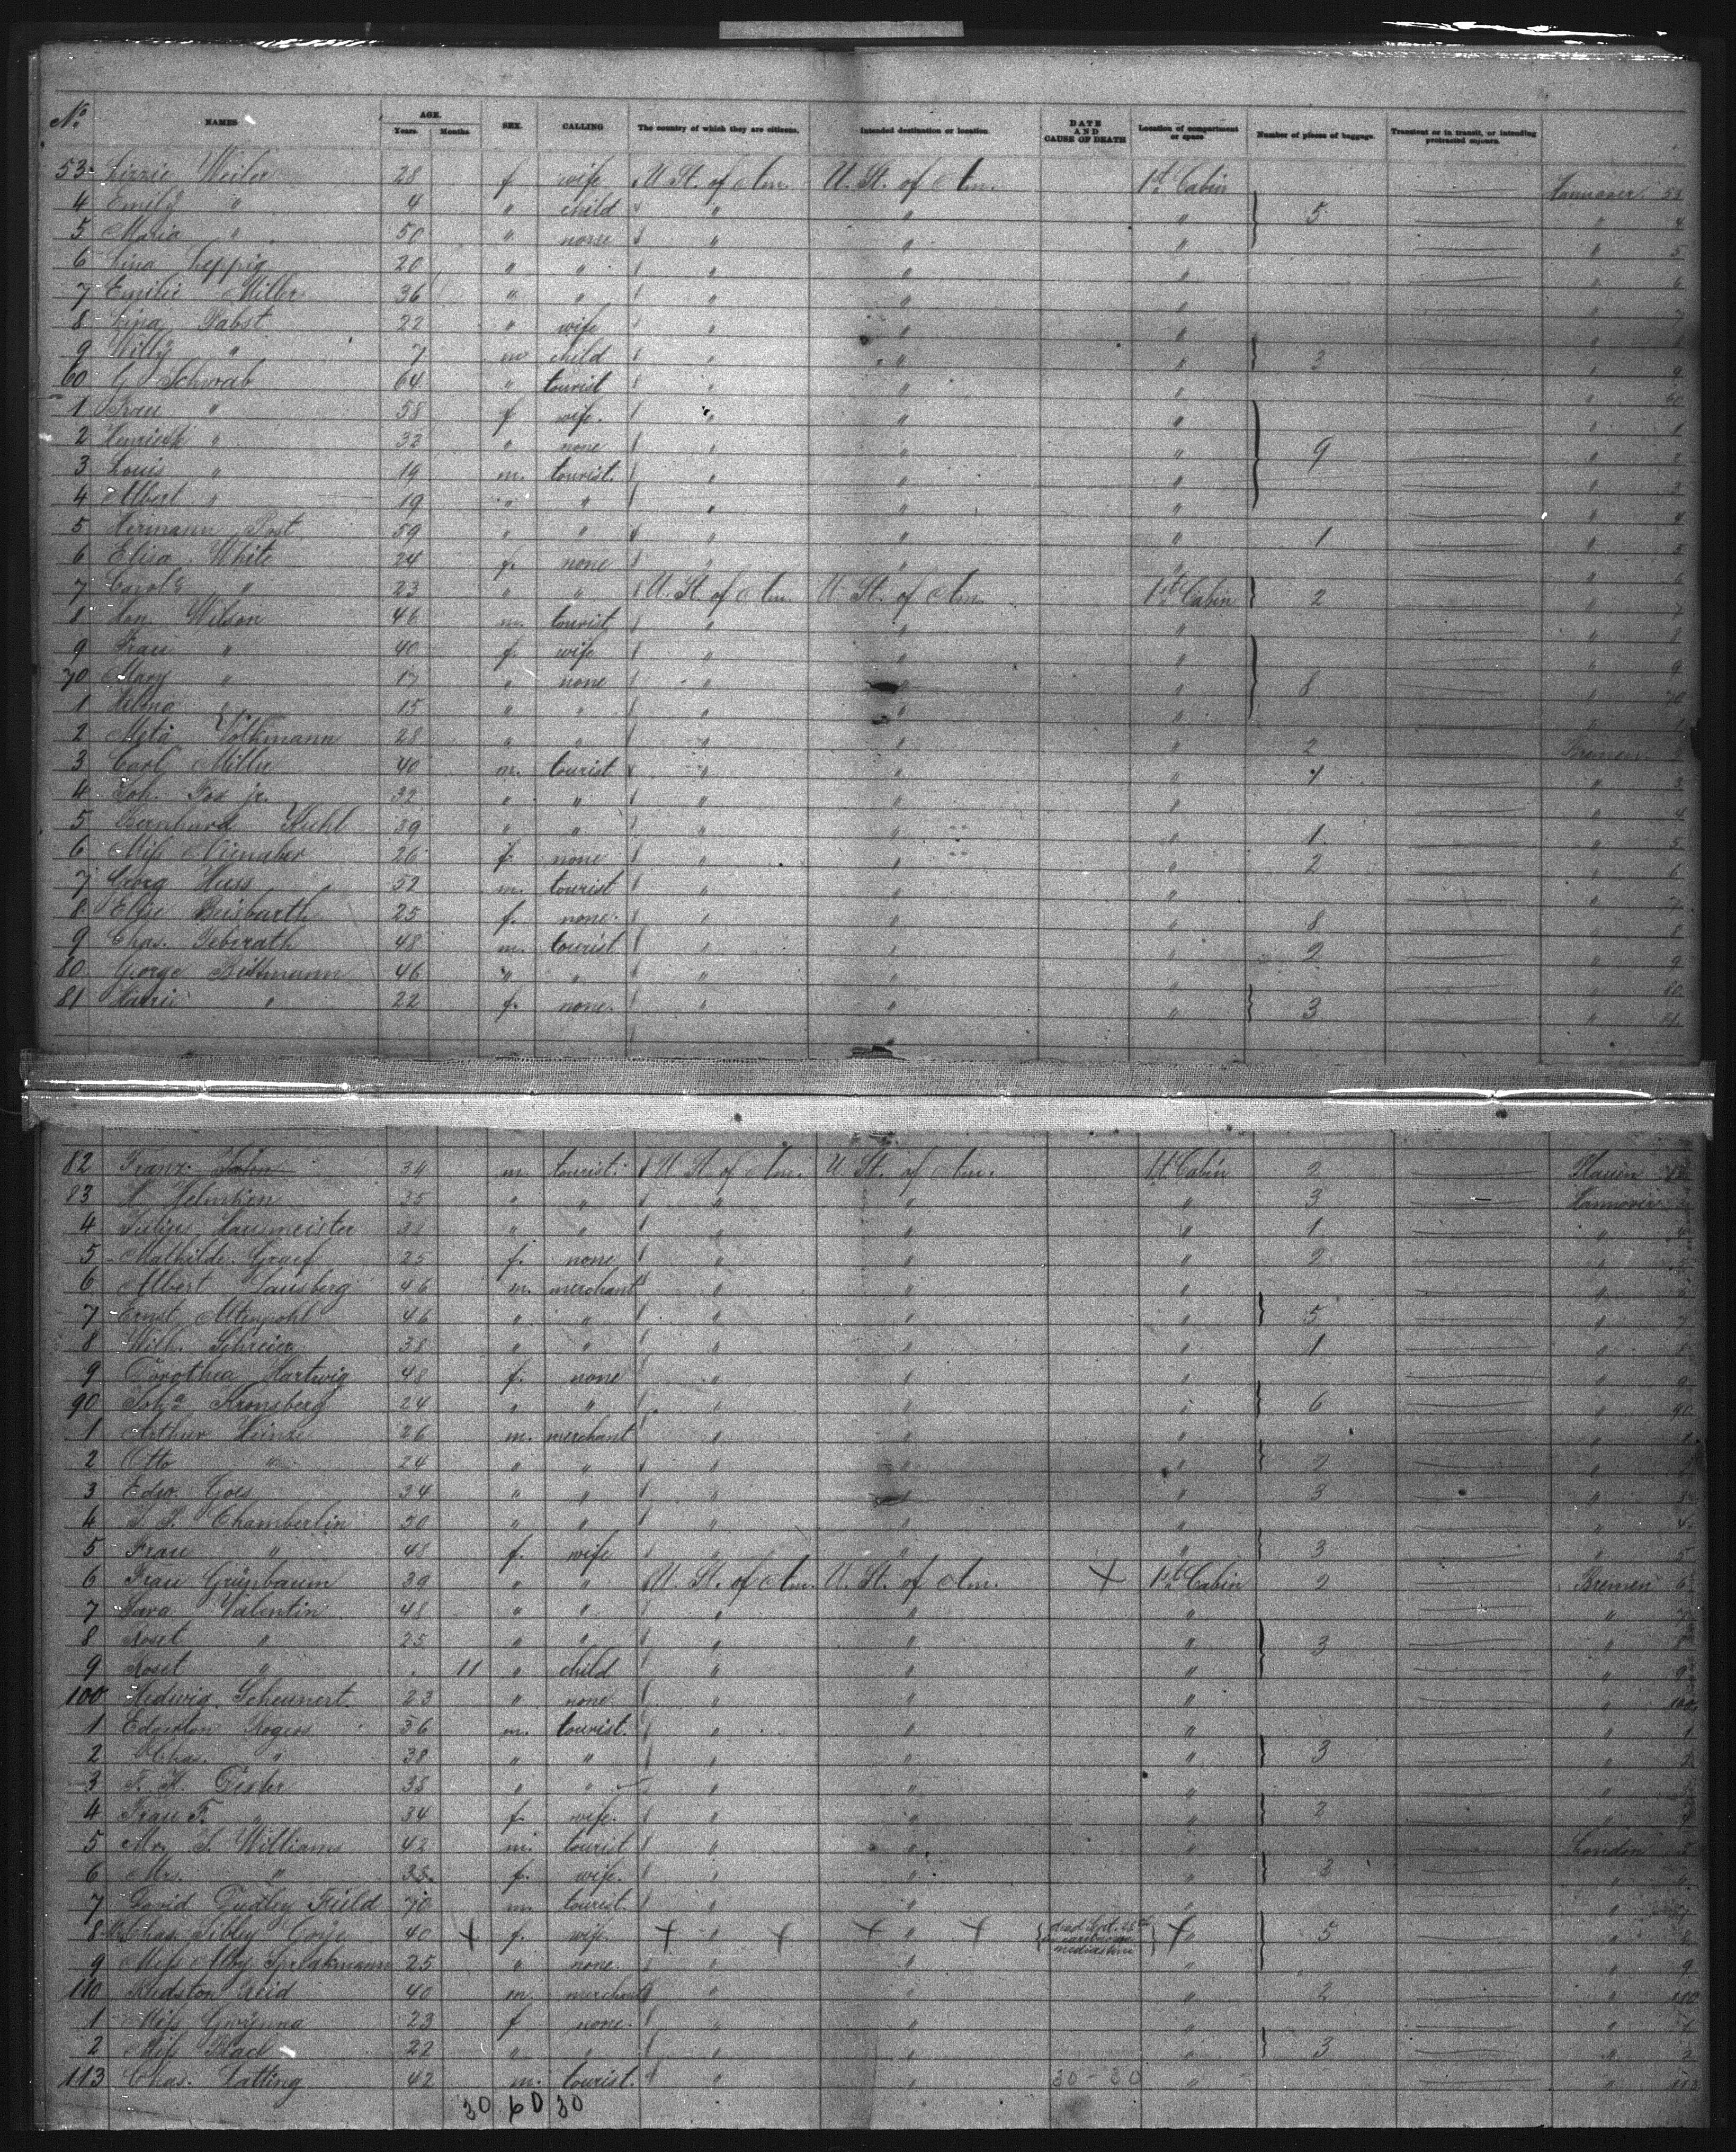 No NAMES AGE. Years. Months. SEX. CALLING The country of which they are citizens. Intended destination or location. DATE AND CAUSE OF DEATH Location of compartment or space Number of pieces of baggage. Transient or in transit, or intending protracted sojourn.
53 Lizzie Weiler 28 f wife U. St. of Am. U. St. of Am. 1st Cabin Hannover 53
4 Emily " 4 " child " " " 5 " 4
5 Maria " 50 " none " " " " 5
6 Lina Leppig 20 " " " " " " 6
7 Emilie Miller 36 " " " " " " 7
8 Lina Pabst 22 " wife " " " "
9 Willy " 7 m child " " " 3 " 9
60 G. Schwab 64 " tourist " " " " 60
1 Frau " 58 f wife " " " " 1
2 " 32 " none " " " 9 " 2
3 Louis " 19 m. tourist. " " " " 3
4 Albert " 19 " " " " " " 4
5 Hermann Post 59 " " " " " 1 " 5
6 Elisa White 24 f. none " " " " 6
7 " 23 " " U. St. of Am. U. St. of Am. 1st Cabin 2 " 7
8 Wilson 46 m. tourist " " " " 8
9 Frau " 40 f. wife " " " " 9
70 Mary " 17 " none " " " 8 " 70
1 " 15 " " " " " " 1
2 Meta Volkmann 28 " " " " " 2 Bremen 2
3 Carl Miller 40 m. tourist " " " 1 " 3
4 Joh. Fox jr. 32 " " " " " " 4
5 Bernhard Kuhl 39 " " " " " 1. " 5
6 Miss 26 f. none " " " 2 " 6
7 Georg Huss 52 m. tourist " " " " 7
8 Elise Beisbarth 25 f. none " " " 8 " 8
9 Chas. 48 m. tourist " " " 2 " 9
80 George 46 " " " " " " 80
81 " 22 f. none. " " " 3 " 81
82 Franz 34 m. tourist U. St. of Am. U. St. of Am. 1st Cabin 2 Plauen 82
83 H. 35 " " " " " 3 Hannover 3
4 Julius Hausmeister 38 " " " " " 1 " 4
5 Mathilde Graef 25 f. none " " " 2 "
6 Albert Lansberg 46 m. merchant " " " "
7 Ernst 46 " " " " " 5 " 7
8 Wilh. Schreier 38 " " " " " 1 " 8
9 Dorothea Hartwig 48 f. none " " " " 9
90 Joha. Kronsberg 24 " " " " " 6 " 90
1 Arthur Heinze 26 m. merchant " " " " 1
2 Otto " 24 " " " " " 2 " 2
3 Edw. Goes 34 " " " " " 3 " 3
4 Chamberlin 30 " " " " " " 4
5 Frau " 48 f. wife " " " 3 " 5
6 Frau Grünbaum 39 " " U. St. of Am. U. St. of Am. + 1st Cabin 2 Bremen 6
7 Sara Valentin 48 " " " " " " 7
8 Roset " 25 " " " " " 3 " 8
9 Roset " . 11 " child " " " " 9
100 Hedwig Scheunert 23 " none " " " " 100
1 Edgerton Rogers 36 m. tourist. " " " " 1
2 Chas. " 38 " " " " " 3 " 2
3 F. K. 38 " " " " " " 3
4 Frau F. " 34 f. wife. " " " 2 " 4
5 Mr. Williams 42 m. tourist " " " London 5
6 Mrs. " 33. f. wife. " " " 3 " 6
7 David Dudley Field 70 m. tourist. " " " " 7
8 Chas. Sibley 40 + f. wife + " + + " + dead Sept. 28th carcinoma mediastini + " 5 " 8
9 Miss 25 " none. " " " " 9
110 Reid 40 m. merchant " " " 2 " 110
1 Miss 23 f none. " " " " 1
2 Miss Black 22 " " " " " 3 " 2
113 Chas. Latting 42 m. tourist. " " 30-30 " " 113
30 60 30